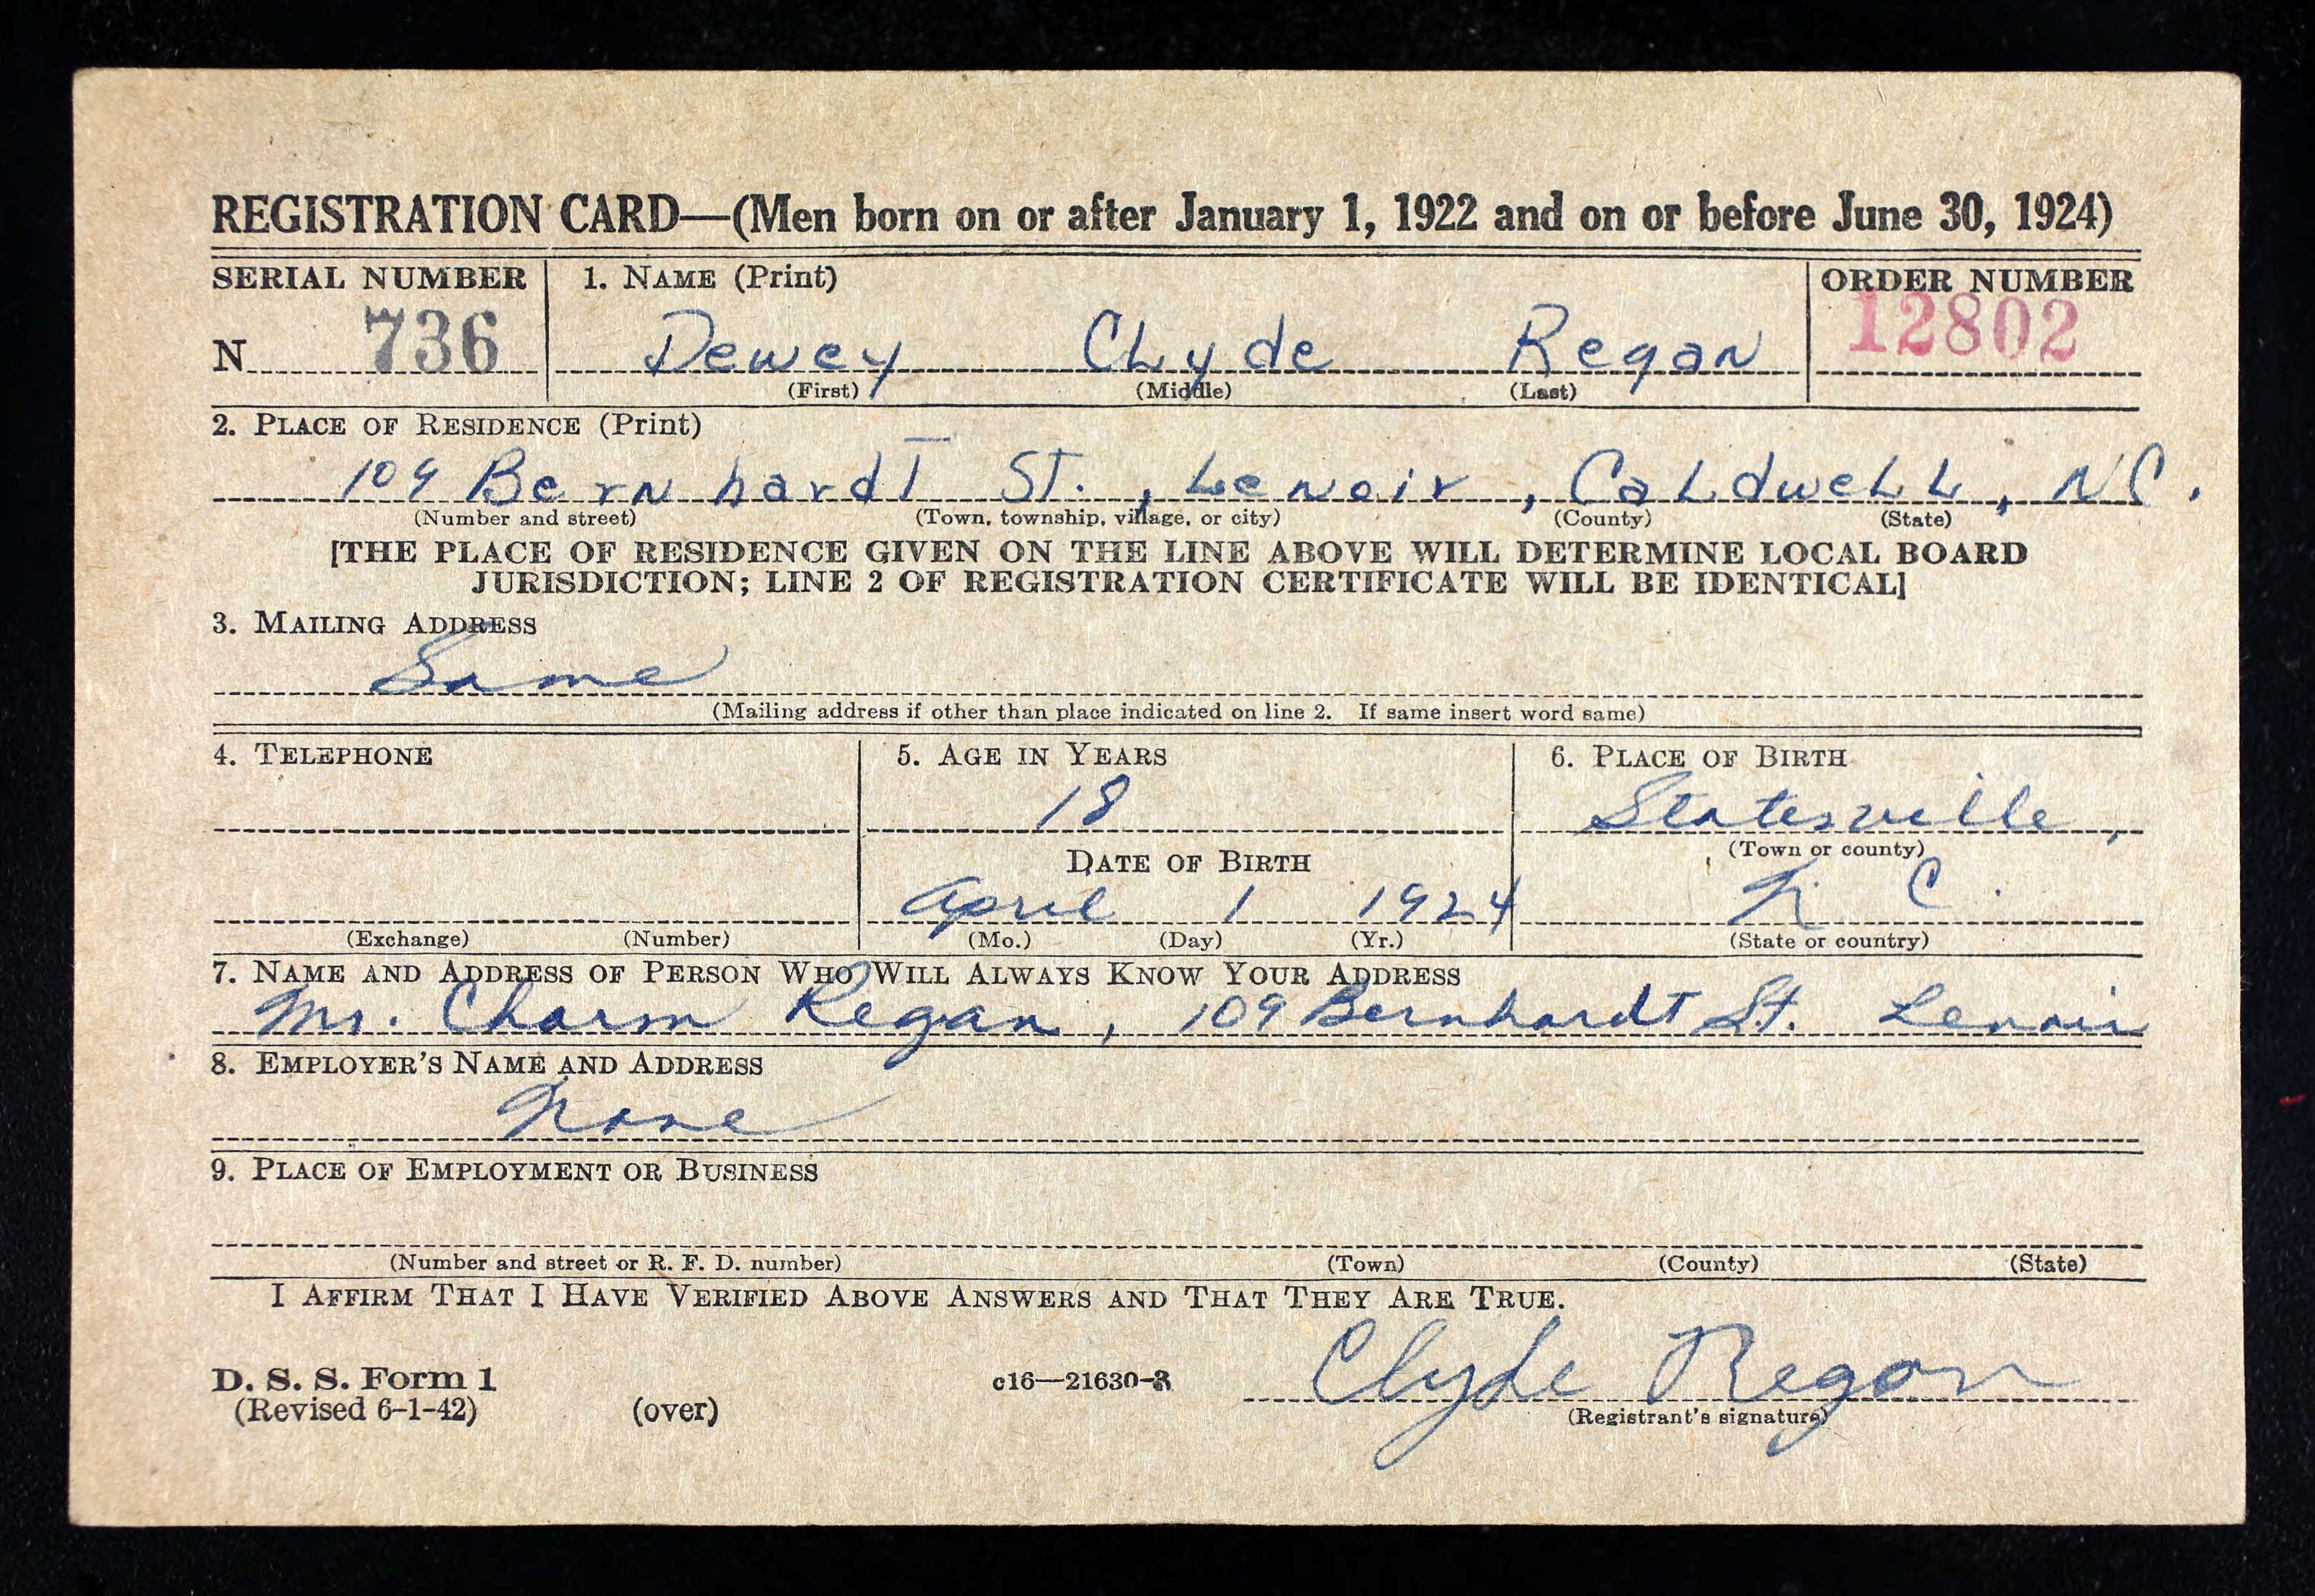 REGISTRATION CARD—(Men born on or after January 1, 1922 and on or before June 30, 1924)
SERIAL NUMBER 1. NAME (Print) ORDER NUMBER
N 736 Dewey Clyde Regan 12802
(First) (Middle) (Last)
2. PLACE OF RESIDENCE (Print)
109 Bernhardt St., Lenoir, Caldwell, NC.
(Number and street) (Town, township, village, or city) (County) (State)
[THE PLACE OF RESIDENCE GIVEN ON THE LINE ABOVE WILL DETERMINE LOCAL BOARD
JURISDICTION; LINE 2 OF REGISTRATION CERTIFICATE WILL BE IDENTICAL]
3. MAILING ADDRESS
Same
(Mailing address if other than place indicated on line 2. If same insert word same)
4. TELEPHONE 5. AGE IN YEARS 6. PLACE OF BIRTH
18 Statesville,
DATE OF BIRTH (Town or county)
April 1 1924 N. C.
(Exchange) (Number) (Mo.) (Day) (Yr.) (State or country)
7. NAME AND ADDRESS OF PERSON WHO WILL ALWAYS KNOW YOUR ADDRESS
Mr. Charm Regan, 109 Bernhardt St. Lenoir
8. EMPLOYER'S NAME AND ADDRESS
None
9. PLACE OF EMPLOYMENT OR BUSINESS
(Number and street or R. F. D. number) (Town) (County) (State)
I AFFIRM THAT I HAVE VERIFIED ABOVE ANSWERS AND THAT THEY ARE TRUE.
D. S. S. Form 1 c16—21630-3 Clyde Regan
(Revised 6-1-42) (over) (Registrant's signature)